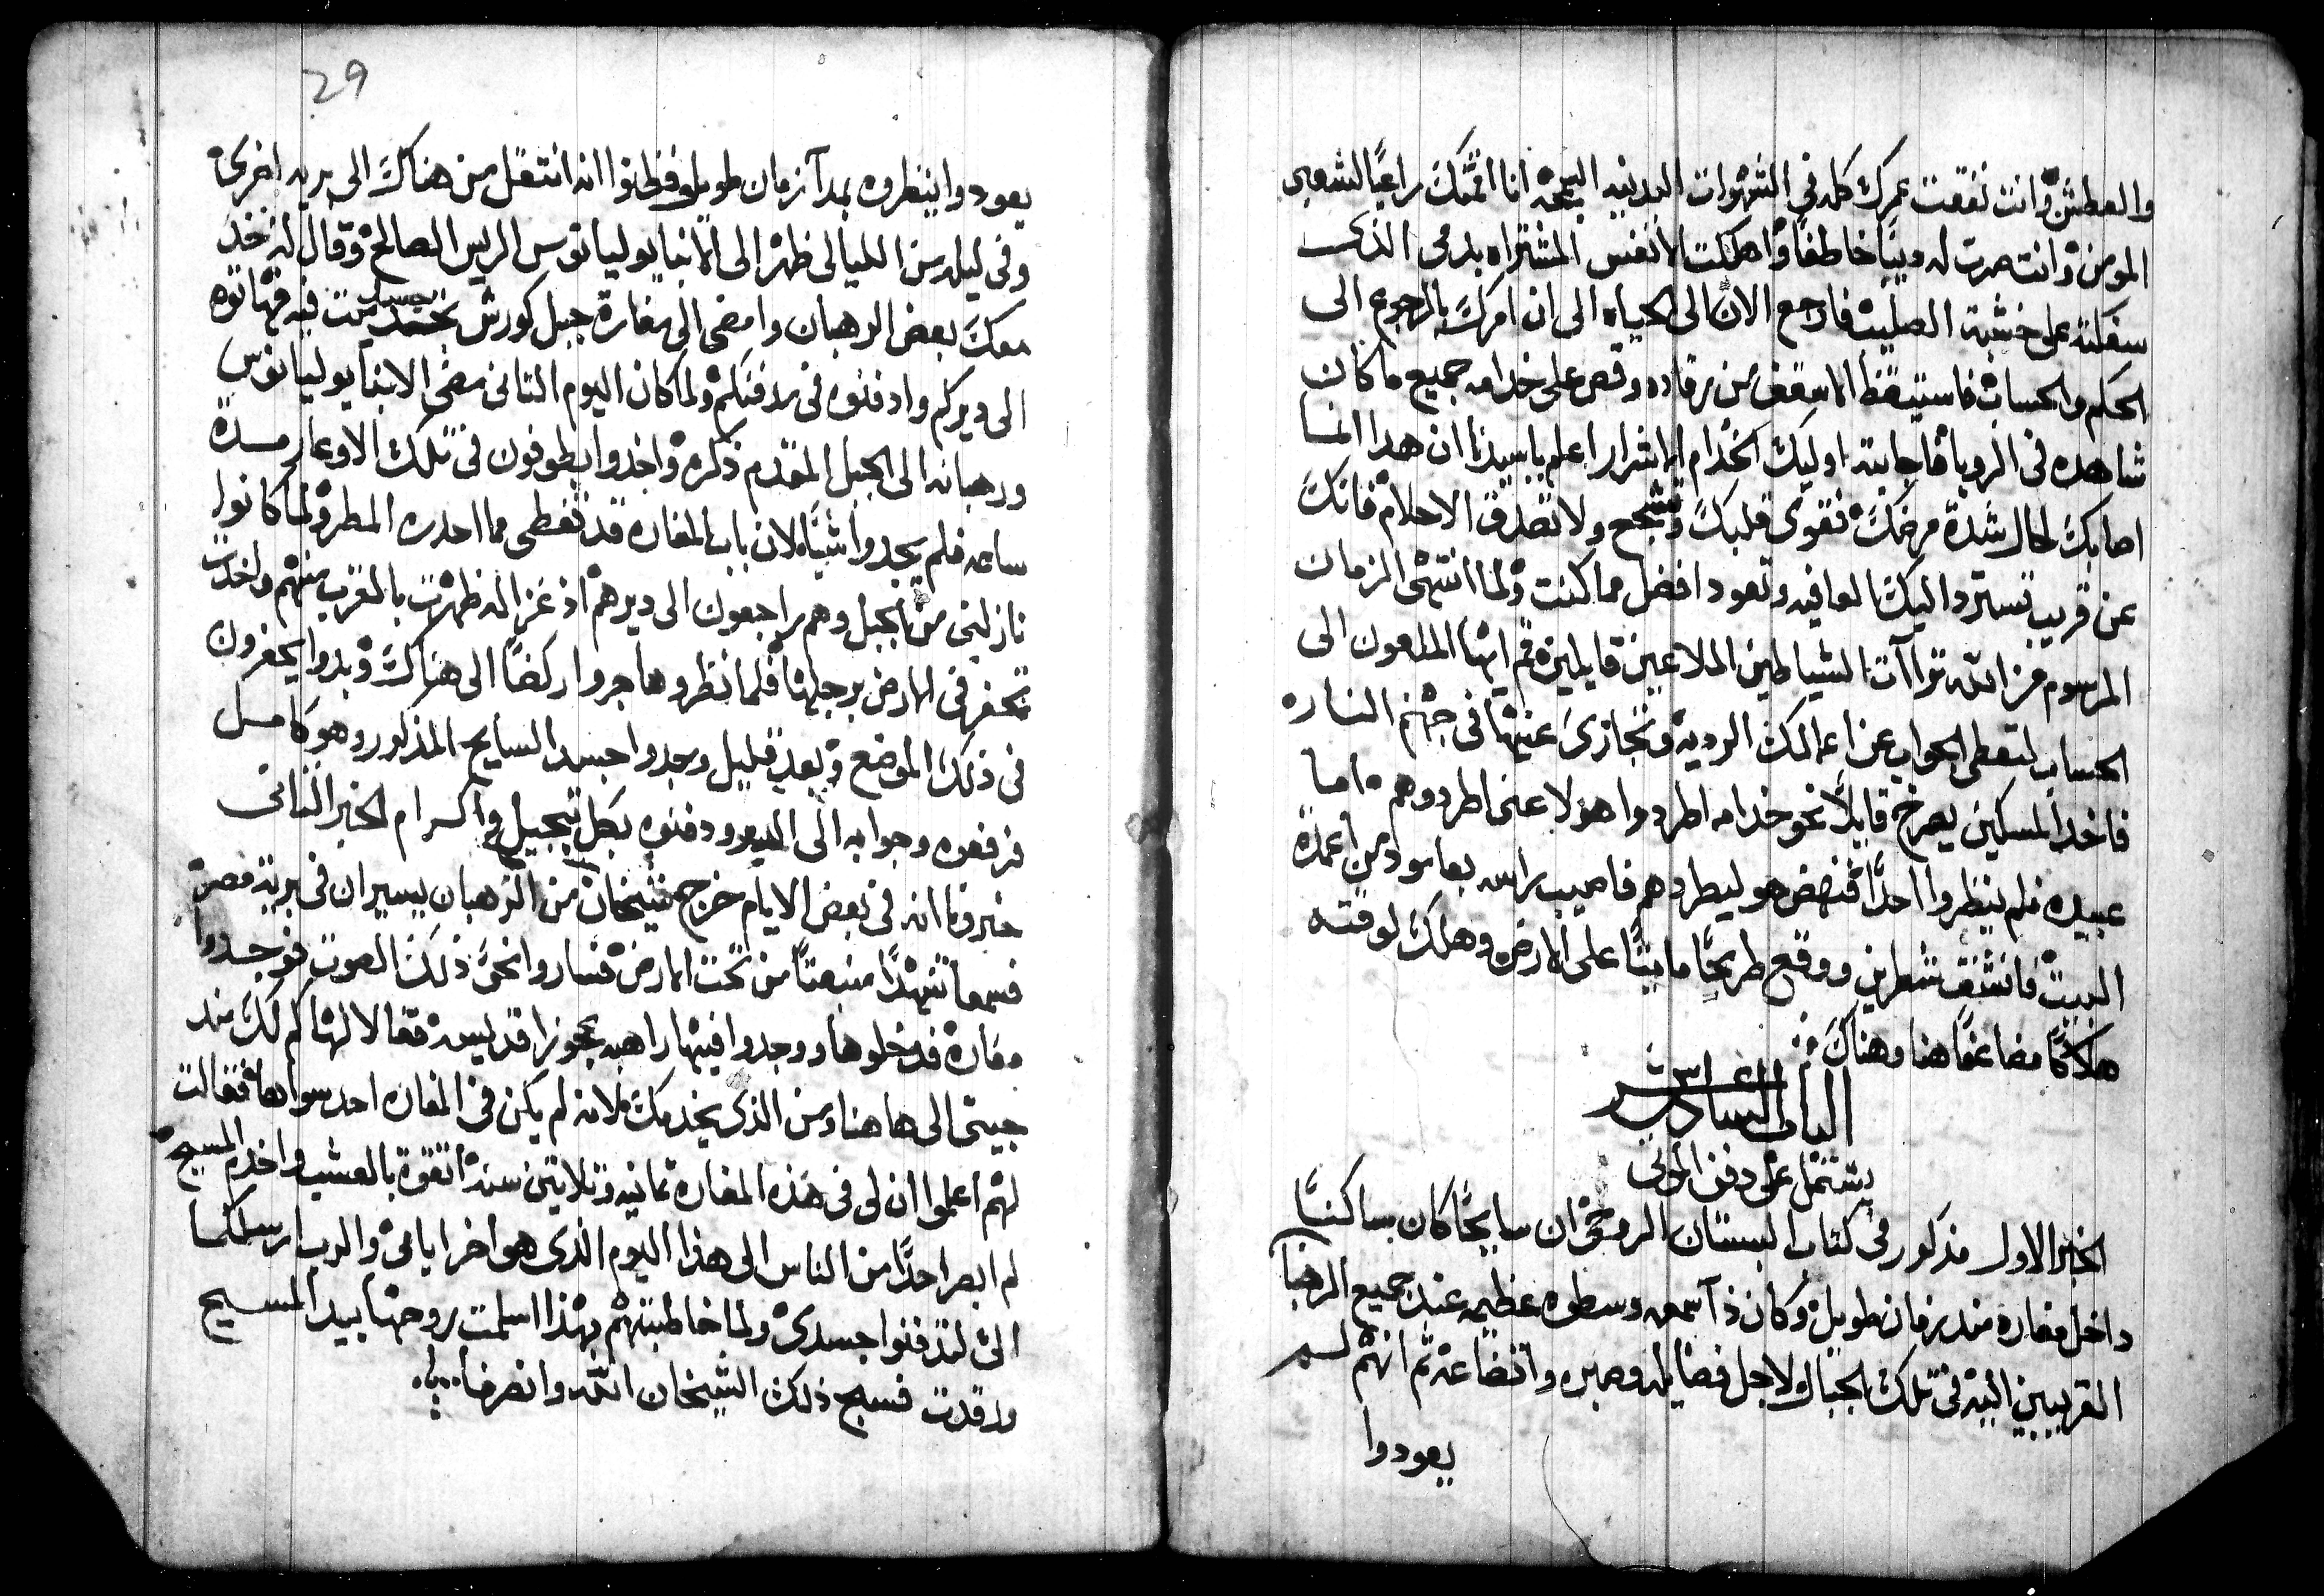 والعطش وانت نفقت عمرك كله في الشهوات البدنيه السمجه انا اقمتك راعيًا لشعبي
المومن وانت صرت له ديبًا خاطفًا واهلكت الانفس المشتراه بدمي الذكي
سفكته على خشبة الصليب فارجع الان الى الحياه الى ان امرك بالرجوع الى
الحكم والحساب فاستيقظ الاسقف من رقاده وقص على خدامه جميع ما كان
شاهده في الرويا فاجابته اوليك الخدام الاشرار اعلم ياسيدنا ان هدا المنا
اصابك لحال شدة مرضك فقوي قلبك وتشجع ولا تصدق الاحلام فانك
عن قريب تسترد اليك العافيه وتعود افضل مما كنت ولما انتهى الزمان
المرسوم من الله تراآت الشياطين الملاعين قايلين قم ايها الملعون الى
الحساب لتعطي الجواب عن اعمالك الرديه وتجازى عنها في جهنم النار
فاخد المسكين يصرخ قايلًا نحو خدامه اطردوا هولا عني اطردوهم اما
عبيده فلم ينظروا احدًا فنهض هو ليطردهم فاصيب راسه بعامود من اعمدة
البيت فانشق شطرين ووقع طريحًا مايتًا على الارض وهلك لوقته
هلاكًا مضاعفًا هنا وهناك
الباب السادس عشر
يشتمل على دفن الموتى
الخبر الاول مذكور في كتاب البستان الروحي ان سايحًا كان ساكنًا
داخل مغاره مند زمان طويل وكان ذا سمعه وسطوه عظيمه عند جميع الرهبا
القريبين اليه في تلك الجبال ولاجل فضايله وصبره واتضاعه ثم انهم لم
يعودوا
29
يعودوا ينظروه بمدا زمان طويل فظنوا انه انتقل من هناك الى بريه اخرى
وفي ليله من الليالي ظهر الى الانبا يوليانوس الريس الصالح وقال له خد
معك بعض الرهبان وامضي الى مغارة جبل كورش تجد جسدي ميت فيه فهاتوه
الى ديركم وادفنوه في مدفنكم ولما كان اليوم التاني مضى الانبا يوليانوس
ورهبانه الى الجبل المقدم ذكره واخدوا يطوفون في تلك الاوعار مدة
ساعه فلم يجدوا شيًا لان باب المغاره قد تغطى مما احدره المطر ولما كانوا
نازلين من الجبل وهم راجعون الى ديرهم اذ غزاله ظهرت بالقرب منهم واخدت
تحفر في الارض برجليها فلما نظروها جروا ركضًا الى هناك وبدوا يحفرون
في ذلك الموضع وبعد قليل وجدوا جسد السايح المذكور وهو كامل
فرفعوه وجوا به الى الدير ودفنوه بكل تبجيل واكرام الخبر الثاني
خبرونا انه في بعض الايام خرج شيخان من الرهبان يسيران في برية مصر
فسمعا تنهدًا منبعتًا من تحت الارض فساروا نحو ذلك الصوت فوجدوا
مغارة فدخلوها ووجدوا فيها راهبه عجوزا قديسه فقالا لها كم لك مند
جيتي الى هاهنا ومن الذي يخدمك لانه لم يكن في المغاره احد سواها فقالت
لهم اعلموا ان لي في هذه المغاره تمانيه وتلاتين سنه اتقوة بالعشب واخدم المسيح
لم ابصر احدًا من الناس الى هذا اليوم الذي هو اخر ايامي والرب ارسلكما
الي لتدفنوا جسدي ولما خاطبتهم بهذا اسلمت روحها بيد المسيح
ورقدت فسبح ذلك الشيخان الله وانصرفا